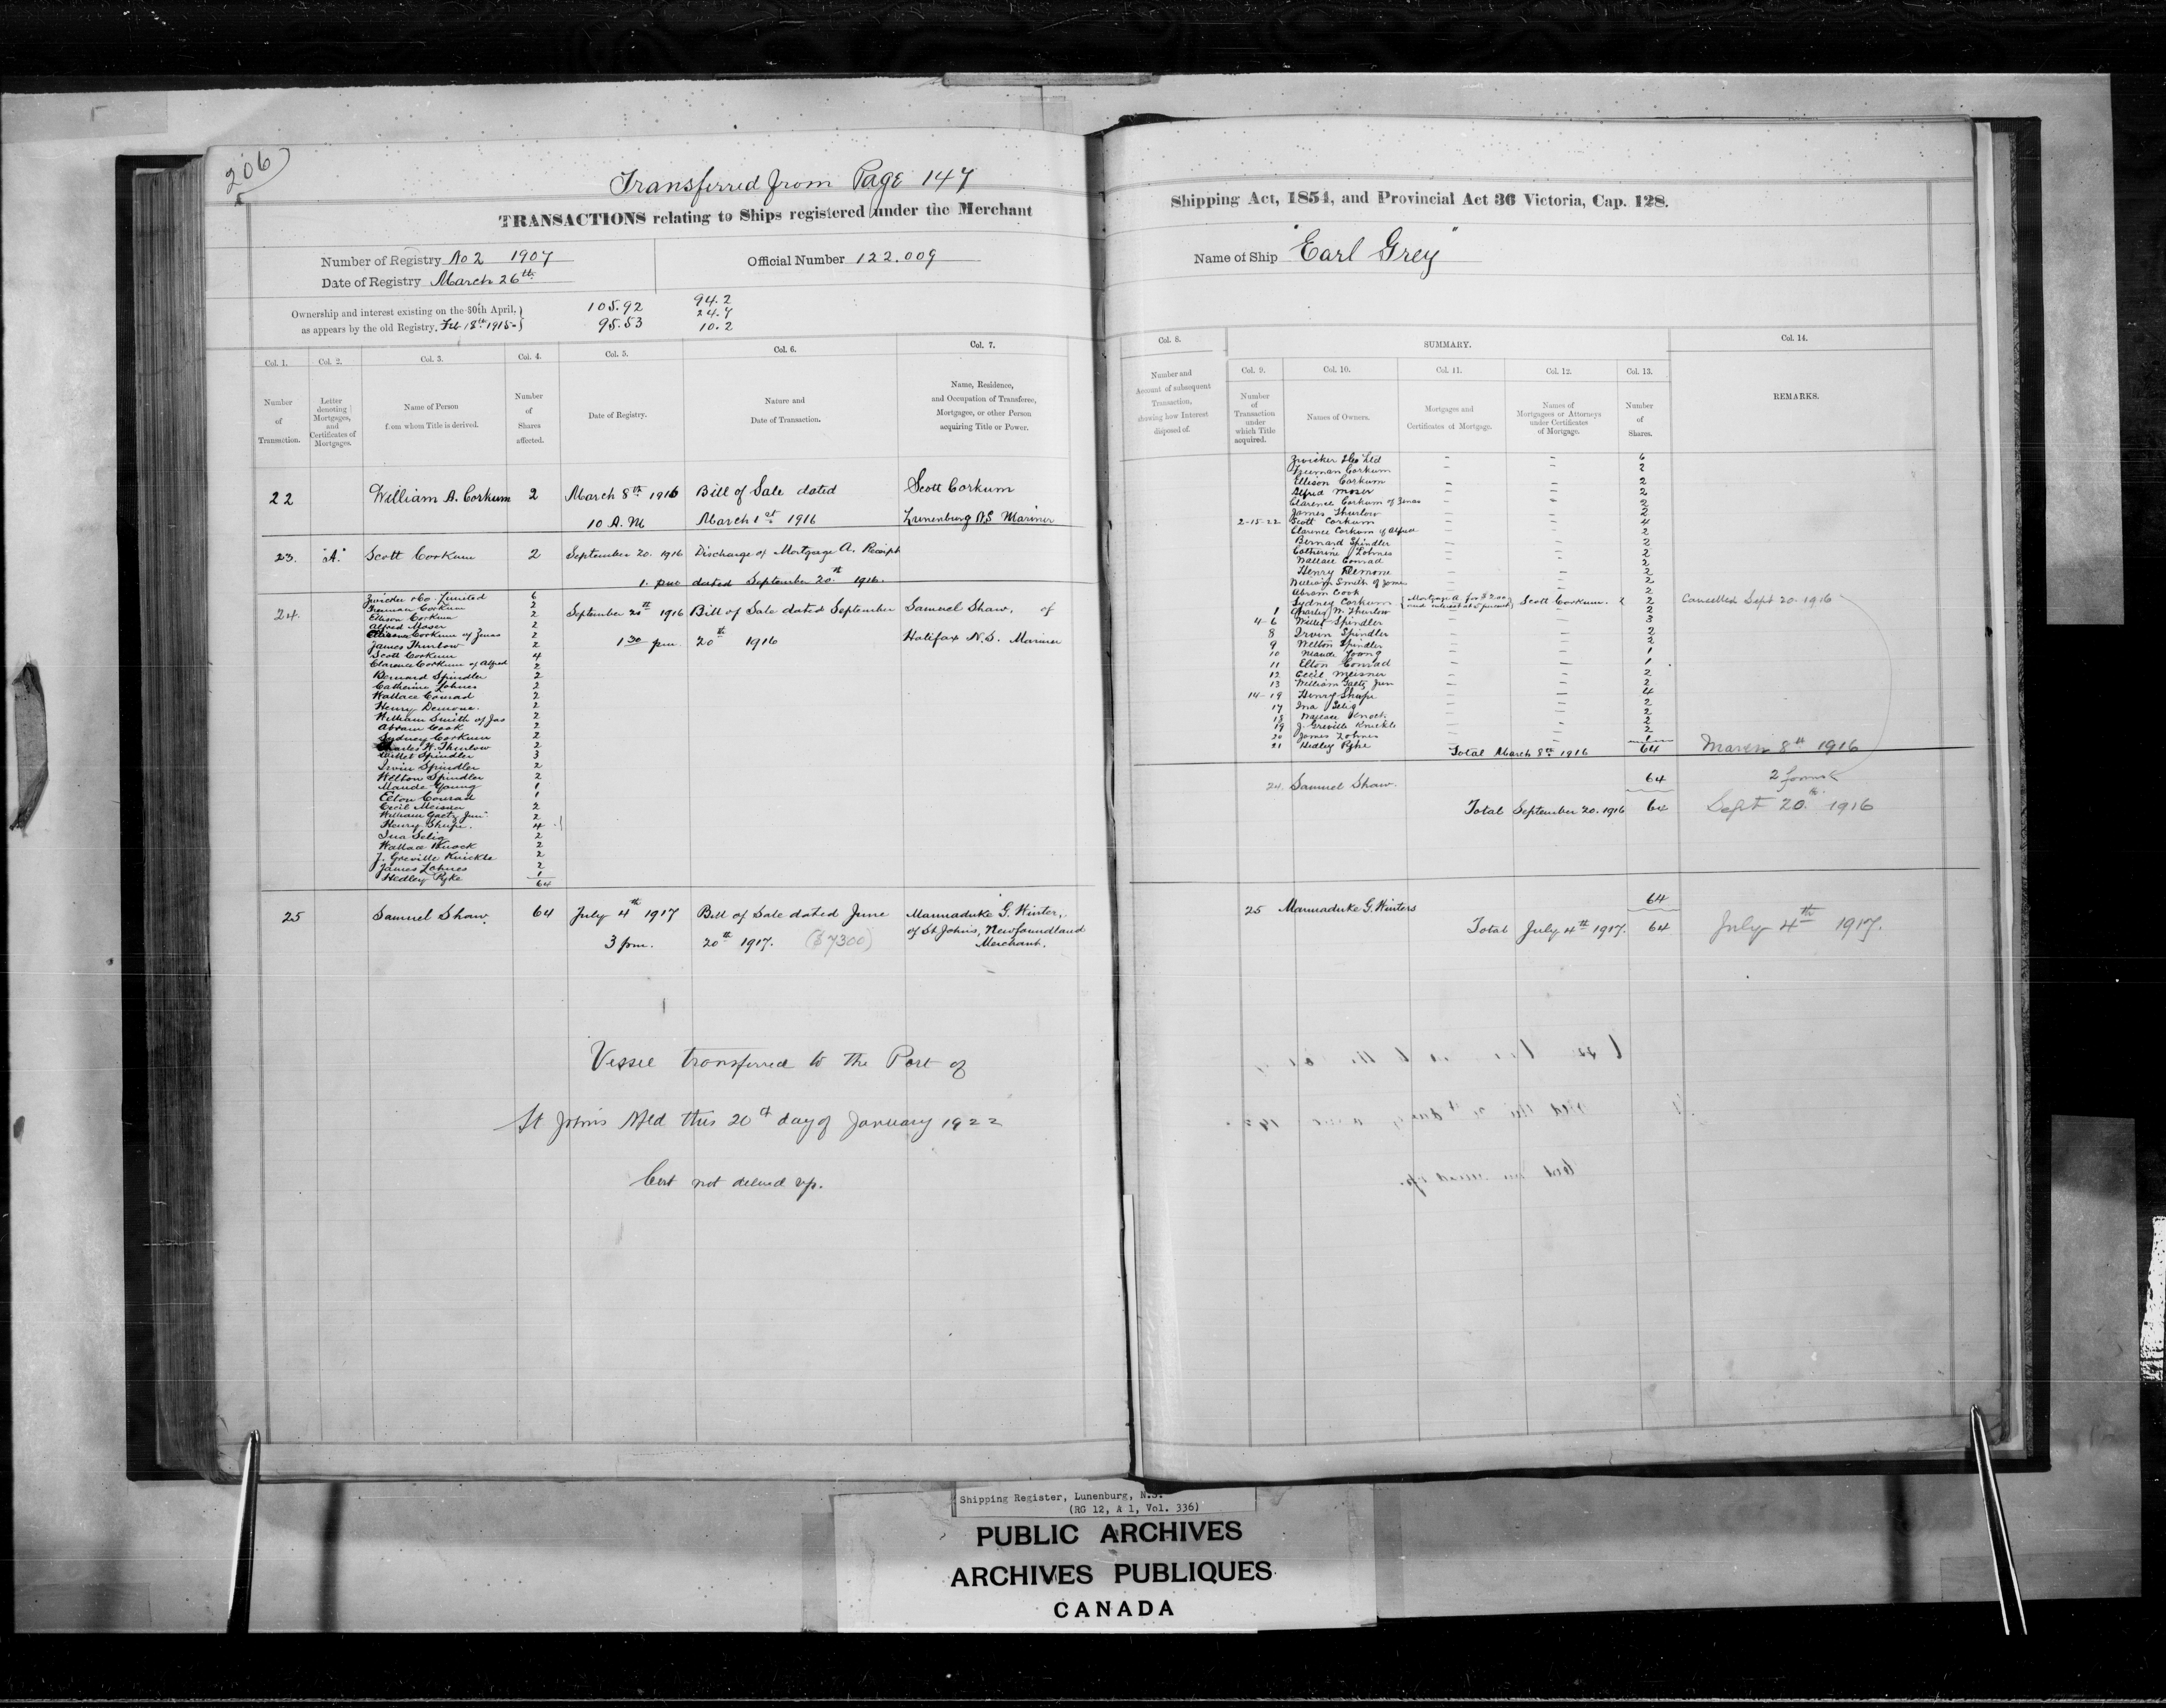 206
Transferred from Page 147
TRANSACTIONS relating to Ships registered under the Merchant
Number of Registry No 2 1907
Date of Registry March 26th
Official Number 122.009
Ownership and interest existing on the 30th April,
as appears by the old Registry. Feb 18th 1915
105.92
95.53
94.2
24.7
10.2
Col. 1.
Col. 2.
Col. 3.
Col. 4.
Col. 5.
Col. 6.
Col. 7.
Number
of
Transaction.
Letter
denoting
Mortgages,
and
Certificates of
Mortgages.
Name of Person
from whom Title is derived.
Number
of
Shares
affected.
Date of Registry.
Nature and
Date of Transaction.
Name, Residence,
and Occupation of Transferee,
Mortgagee, or other Person
acquiring Title or Power.
22 William A. Corkum 2 March 8th 1916 Bill of Sale dated Scott Corkum
10 A.M March 1st 1916 Lunenburg NS Mariner
23. "A." Scott Corkum 2 September 20. 1916 Discharge of Mortgage A. Receipt
1. pm dated September 20th 1916.
24.
Zwicker & Co. Limited 6
Freeman Corkum 2
Ellison Corkum 2
Alfred Moser 2
Corkum of Zenas 2
James Thurlow 2
Scott Corkum 4
Clarence Corkum of Alfred 2
Bernard Spindler 2
Catherine Lohnes 2
Wallace Conrad 2
Henry Demone. 2
William Smith of Jas 2
Abram Cook 2
Sydney Corkum 2
Charles W. Thurlow 2
Willet Spindler 3
Irvin Spindler 2
Welton Spindler 2
Maude Young 1
Elton Conrad 1
Cecil Meisner 2
William Gaetz Jun 2
Henry Shupe. 4
Ina Selig 2
Wallace Knock 2
J. Greville Knickle 2
James Lohnes 2
Hedley Pyke 1
64
September 20th 1916 Bill of Sale dated September Samuel Shaw, of
1 30 pm. 20th 1916 Halifax N.S. Mariner
25 Samuel Shaw. 64 July 4th 1917 Bill of Sale dated June Marmaduke G. Winter,
3 pm. 20th 1917. ($7300) of St Johns, Newfoundland
Merchant.
Vessel transferred to the Port of
St Johns Nfld this 20th day of January 1922
Cert not delivd up.
Shipping Act, 1854, and Provincial Act 36 Victoria, Cap. 128.
Name of Ship "Earl Grey"
Col. 8.
SUMMARY.
Col. 14.
Number and
Amount of subsequent
Transaction,
showing how Interest
disposed of.
Col. 9.
Col. 10.
Col. 11.
Col. 12.
Col. 13.
Number
of
Transaction
under
which Title
acquired.
Names of Owners.
Mortgages and
Certificates of Mortgage.
Names of
Mortgagees or Attorneys
under Certificates
of Mortgage.
Number
of
Shares.
REMARKS.
Zwicker & Co Ltd – – 6
Freeman Corkum – – 2
Ellison Corkum – – 2
Alfred Moser – – 2
Clarence Corkum of Zenas – – 2
James Thurlow – – 2
2-15-22 Scott Corkum – – 4
Clarence Corkum of Alfred – – 2
Bernard Spindler – – 2
Catherine Lohnes – – 2
Wallace Conrad – – 2
Henry Demone – – 2
William Smith of James – – 2
Abram Cook – – 2
Sydney Corkum Mortgage A for $200 and interest at 5 percent Scott Corkum. 2 Cancelled Sept 20. 1916
1 Charles W. Thurlow – – 2
4-6 Willet Spindler – – 3
8 Irvin Spindler – – 2
9 Welton Spindler – – 2
10 Maude Young – – 1
11 Elton Conrad – – 1
12 Cecil Meisner – – 2
13 William Gaetz Jun – – 2
14-19 Henry Shupe – – 4
17 Ina Selig – – 2
18 Wallace Knock – – 2
19 J. Greville Knickle – – 2
20 James Lohnes – – 2
21 Hedley Pyke – 1
Total March 8th 1916 64 March 8th 1916
24. Samuel Shaw. 64 2 forms
Total September 20. 1916 64 Sept 20th 1916
25 Marmaduke G. Winters 64
Total July 4th 1917. 64 July 4th 1917.
Shipping Register, Lunenburg, N.S.
(RG 12, A 1, Vol. 336)
PUBLIC ARCHIVES
ARCHIVES PUBLIQUES
CANADA